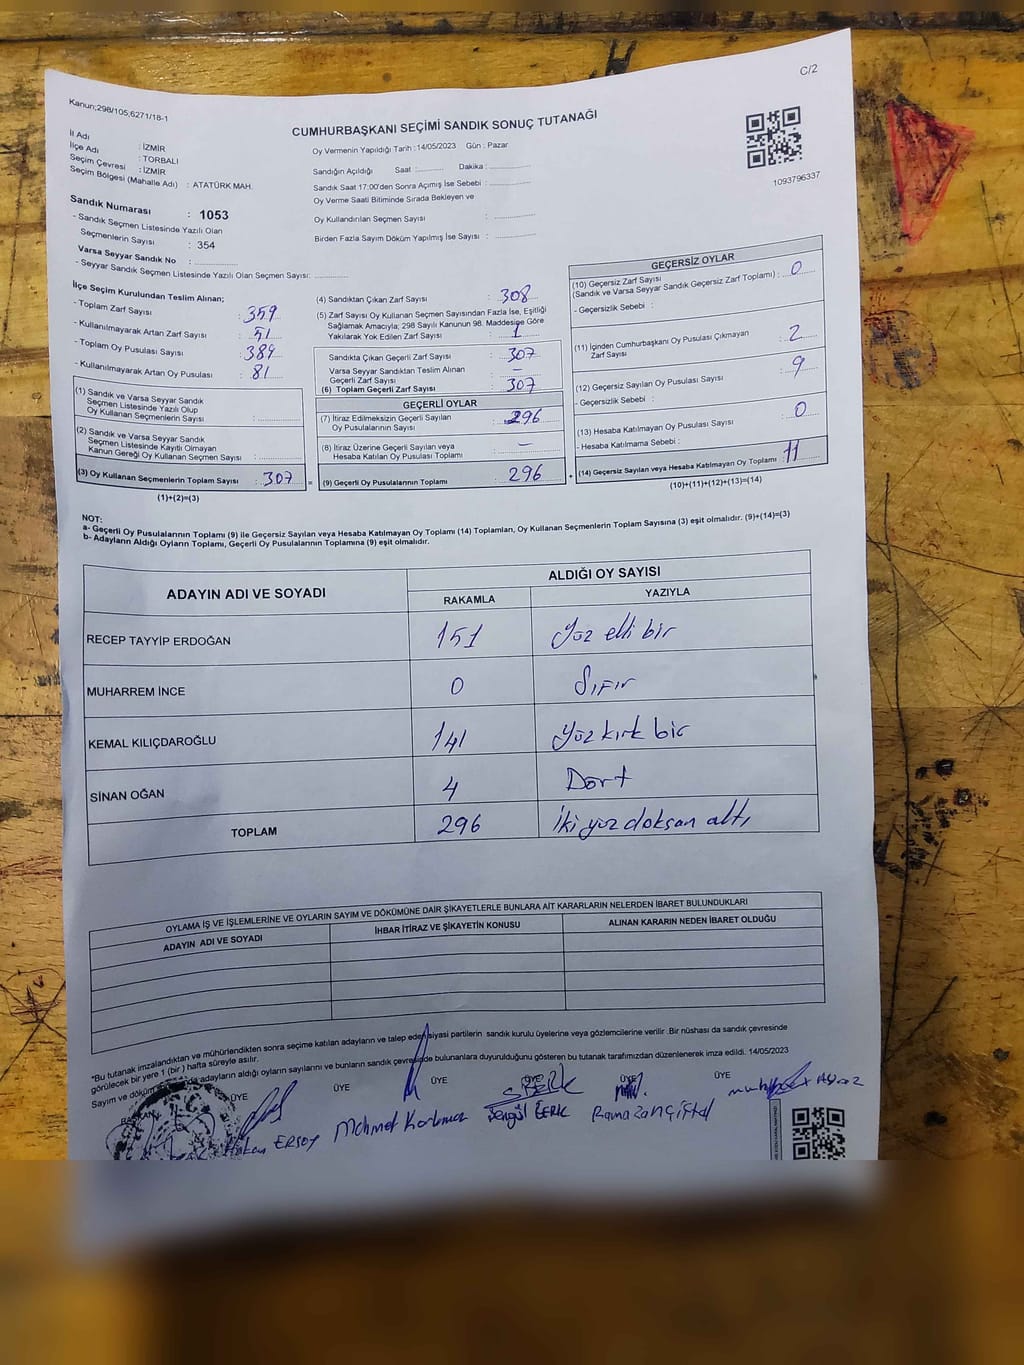 C/2
Kanun;298/105,6271/18-1
CUMHURBAŞKANI SEÇİMİ SANDIK SONUÇ TUTANAĞI
İl Adı : İZMİR
İlçe Adı : TORBALI
Seçim Çevresi : İZMİR
Seçim Bölgesi (Mahalle Adı) : ATATÜRK MAH.
Oy Vermenin Yapıldığı Tarih :14/05/2023 Gün : Pazar
Sandığın Açıldığı Saat :.......... Dakika :..............
Sandık Saat 17:00'den Sonra Açımış İse Sebebi :..............
Oy Verme Saati Bitiminde Sırada Bekleyen ve
Oy Kullandırılan Seçmen Sayısı : ..............
Birden Fazla Sayım Döküm Yapılmış İse Sayısı : ..............
1093796337
Sandık Numarası : 1053
- Sandık Seçmen Listesinde Yazılı Olan
Seçmenlerin Sayısı : 354
Varsa Seyyar Sandık No : ..............
- Seyyar Sandık Seçmen Listesinde Yazılı Olan Seçmen Sayısı: ............
İlçe Seçim Kurulundan Teslim Alınan;
- Toplam Zarf Sayısı : 359
- Kullanılmayarak Artan Zarf Sayısı : 51
- Toplam Oy Pusulası Sayısı : 384
- Kullanılmayarak Artan Oy Pusulası : 81
(1) Sandık ve Varsa Seyyar Sandık
Seçmen Listesinde Yazılı Olup
Oy Kullanan Seçmenlerin Sayısı : ..............
(2) Sandık ve Varsa Seyyar Sandık
Seçmen Listesinde Kayıtlı Olmayan
Kanun Gereği Oy Kullanan Seçmen Sayısı : ..............
(3) Oy Kullanan Seçmenlerin Toplam Sayısı : 307 =
(1)+(2)=(3)
(4) Sandıktan Çıkan Zarf Sayısı : 308
(5) Zarf Sayısı Oy Kullanan Seçmen Sayısından Fazla İse, Eşitliği
Sağlamak Amacıyla; 298 Sayılı Kanunun 98. Maddesine Göre
Yakılarak Yok Edilen Zarf Sayısı : 1
Sandıkta Çıkan Geçerli Zarf Sayısı : 307
Varsa Seyyar Sandıktan Teslim Alınan
Geçerli Zarf Sayısı : –
(6) Toplam Geçerli Zarf Sayısı : 307
GEÇERLİ OYLAR
(7) İtiraz Edilmeksizin Geçerli Sayılan
Oy Pusulalarının Sayısı : 296
(8) İtiraz Üzerine Geçerli Sayılan veya
Hesaba Katılan Oy Pusulası Toplamı : –
(9) Geçerli Oy Pusulalarının Toplamı : 296 +
GEÇERSİZ OYLAR
(10) Geçersiz Zarf Sayısı
(Sandık ve Varsa Seyyar Sandık Geçersiz Zarf Toplamı) : 0
- Geçersizlik Sebebi :
(11) İçinden Cumhurbaşkanı Oy Pusulası Çıkmayan
Zarf Sayısı : 2
(12) Geçersiz Sayılan Oy Pusulası Sayısı : 9
- Geçersizlik Sebebi :
(13) Hesaba Katılmayan Oy Pusulası Sayısı : 0
- Hesaba Katılmama Sebebi :
(14) Geçersiz Sayılan veya Hesaba Katılmayan Oy Toplamı : 11
(10)+(11)+(12)+(13)=(14)
NOT:
a- Geçerli Oy Pusulalarının Toplamı (9) ile Geçersiz Sayılan veya Hesaba Katılmayan Oy Toplamı (14) Toplamları, Oy Kullanan Seçmenlerin Toplam Sayısına (3) eşit olmalıdır. (9)+(14)=(3)
b- Adayların Aldığı Oyların Toplamı, Geçerli Oy Pusulalarının Toplamına (9) eşit olmalıdır.
ADAYIN ADI VE SOYADI
ALDIĞI OY SAYISI
RAKAMLA YAZIYLA
RECEP TAYYİP ERDOĞAN 151 yüz elli bir
MUHARREM İNCE 0 Sıfır
KEMAL KILIÇDAROĞLU 141 yüz kırk bir
SİNAN OĞAN 4 Dört
TOPLAM 296 İki yüz doksan altı
OYLAMA İŞ VE İŞLEMLERİNE VE OYLARIN SAYIM VE DÖKÜMÜNE DAİR ŞİKAYETLERLE BUNLARA AİT KARARLARIN NELERDEN İBARET BULUNDUKLARI
ADAYIN ADI VE SOYADI
İHBAR İTİRAZ VE ŞİKAYETİN KONUSU
ALINAN KARARIN NEDEN İBARET OLDUĞU
*Bu tutanak imzalandıktan ve mühürlendikten sonra seçime katılan adayların ve talep eden siyasi partilerin sandık kurulu üyelerine veya gözlemcilerine verilir. Bir nüshası da sandık çevresinde
görülecek bir yere 1 (bir) hafta süreyle asılır.
Sayım ve döküm adayların aldığı oyların sayılarını ve bunların sandık çevresinde bulunanlara duyurulduğunu gösteren bu tutanak tarafımızdan düzenlenerek imza edildi. 14/05/2023
BAŞKAN ÜYE ÜYE ÜYE ÜYE ÜYE
Hakan ERSOY
Mehmet Korkmaz
Şengül
Ramazan